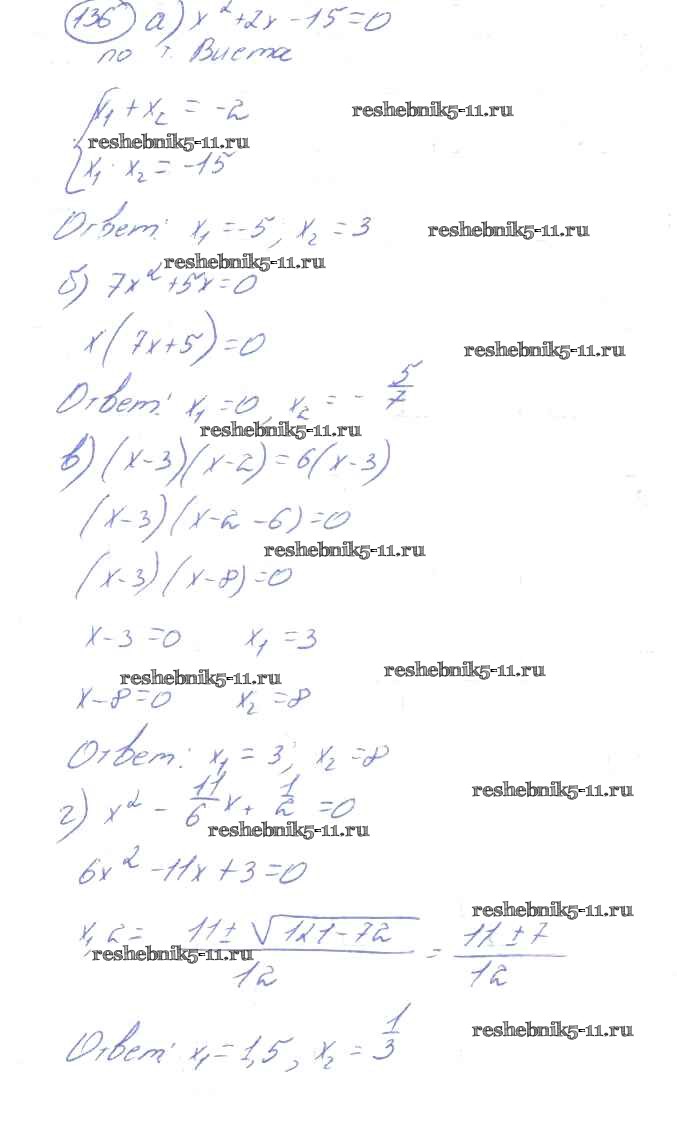 136 а) x² + 2x - 15 = 0
по т. Виета
x₁ + x₂ = -2
reshebnik5-11.ru
reshebnik5-11.ru
x₁ · x₂ = -15
Ответ: x₁ = -5; x₂ = 3
reshebnik5-11.ru
reshebnik5-11.ru
б) 7x² + 5x = 0
x(7x+5) = 0
reshebnik5-11.ru
Ответ: x₁ = 0, x₂ = - 5/7
reshebnik5-11.ru
в) (x-3)(x-2) = 6(x-3)
(x-3)(x-2-6) = 0
reshebnik5-11.ru
(x-3)(x-8) = 0
x-3 = 0 x₁ = 3
reshebnik5-11.ru
reshebnik5-11.ru
x-8 = 0 x₂ = 8
Ответ: x₁ = 3; x₂ = 8
reshebnik5-11.ru
г) x² - 11/6 x + 1/2 = 0
reshebnik5-11.ru
6x² - 11x + 3 = 0
reshebnik5-11.ru
x₁,₂ = (11 ± √(121-72))/12 = (11 ± 7)/12
reshebnik5-11.ru
reshebnik5-11.ru
Ответ: x₁ = 1,5, x₂ = 1/3